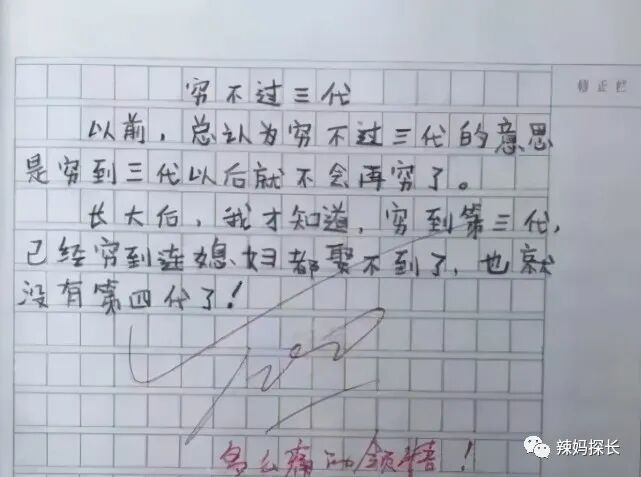 修正栏
穷不过三代
以前，总认为穷不过三代的意思
是穷到三代以后就不会再穷了。
长大后，我才知道，穷到第三代，
已经穷到连媳妇都娶不到了，也就
没有第四代了！
100
多么痛的领悟！
辣妈探长